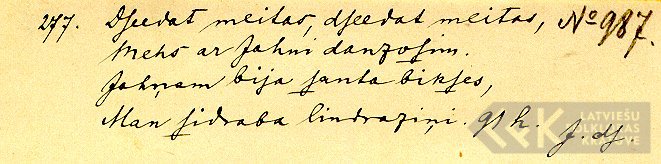 277. Dseedat meitas, dseedat meitas, No 987.
Mehs ar Jahni danzosim.
Jahņam bija santa bikses,
Man sidraba lindraziņi. 91 k. J. ds.
LATVIEŠU
FOLKLORAS
KRĀTUVE